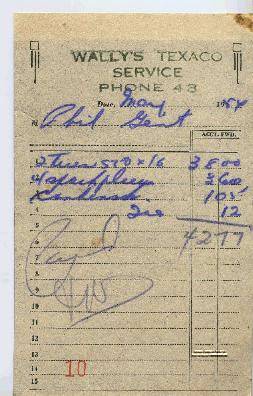 WALLY'S TEXACO
SERVICE
PHONE 43
Date, May 1954
M Phil Gent
ACCT. FWD.
1 2 tires 670 x 16 38 00
2 4 spark plugs 3 60
3 1 05
4 Tax 12
5 42 77
6 Paid
7
8
9
10
11
12
13
14
15
10